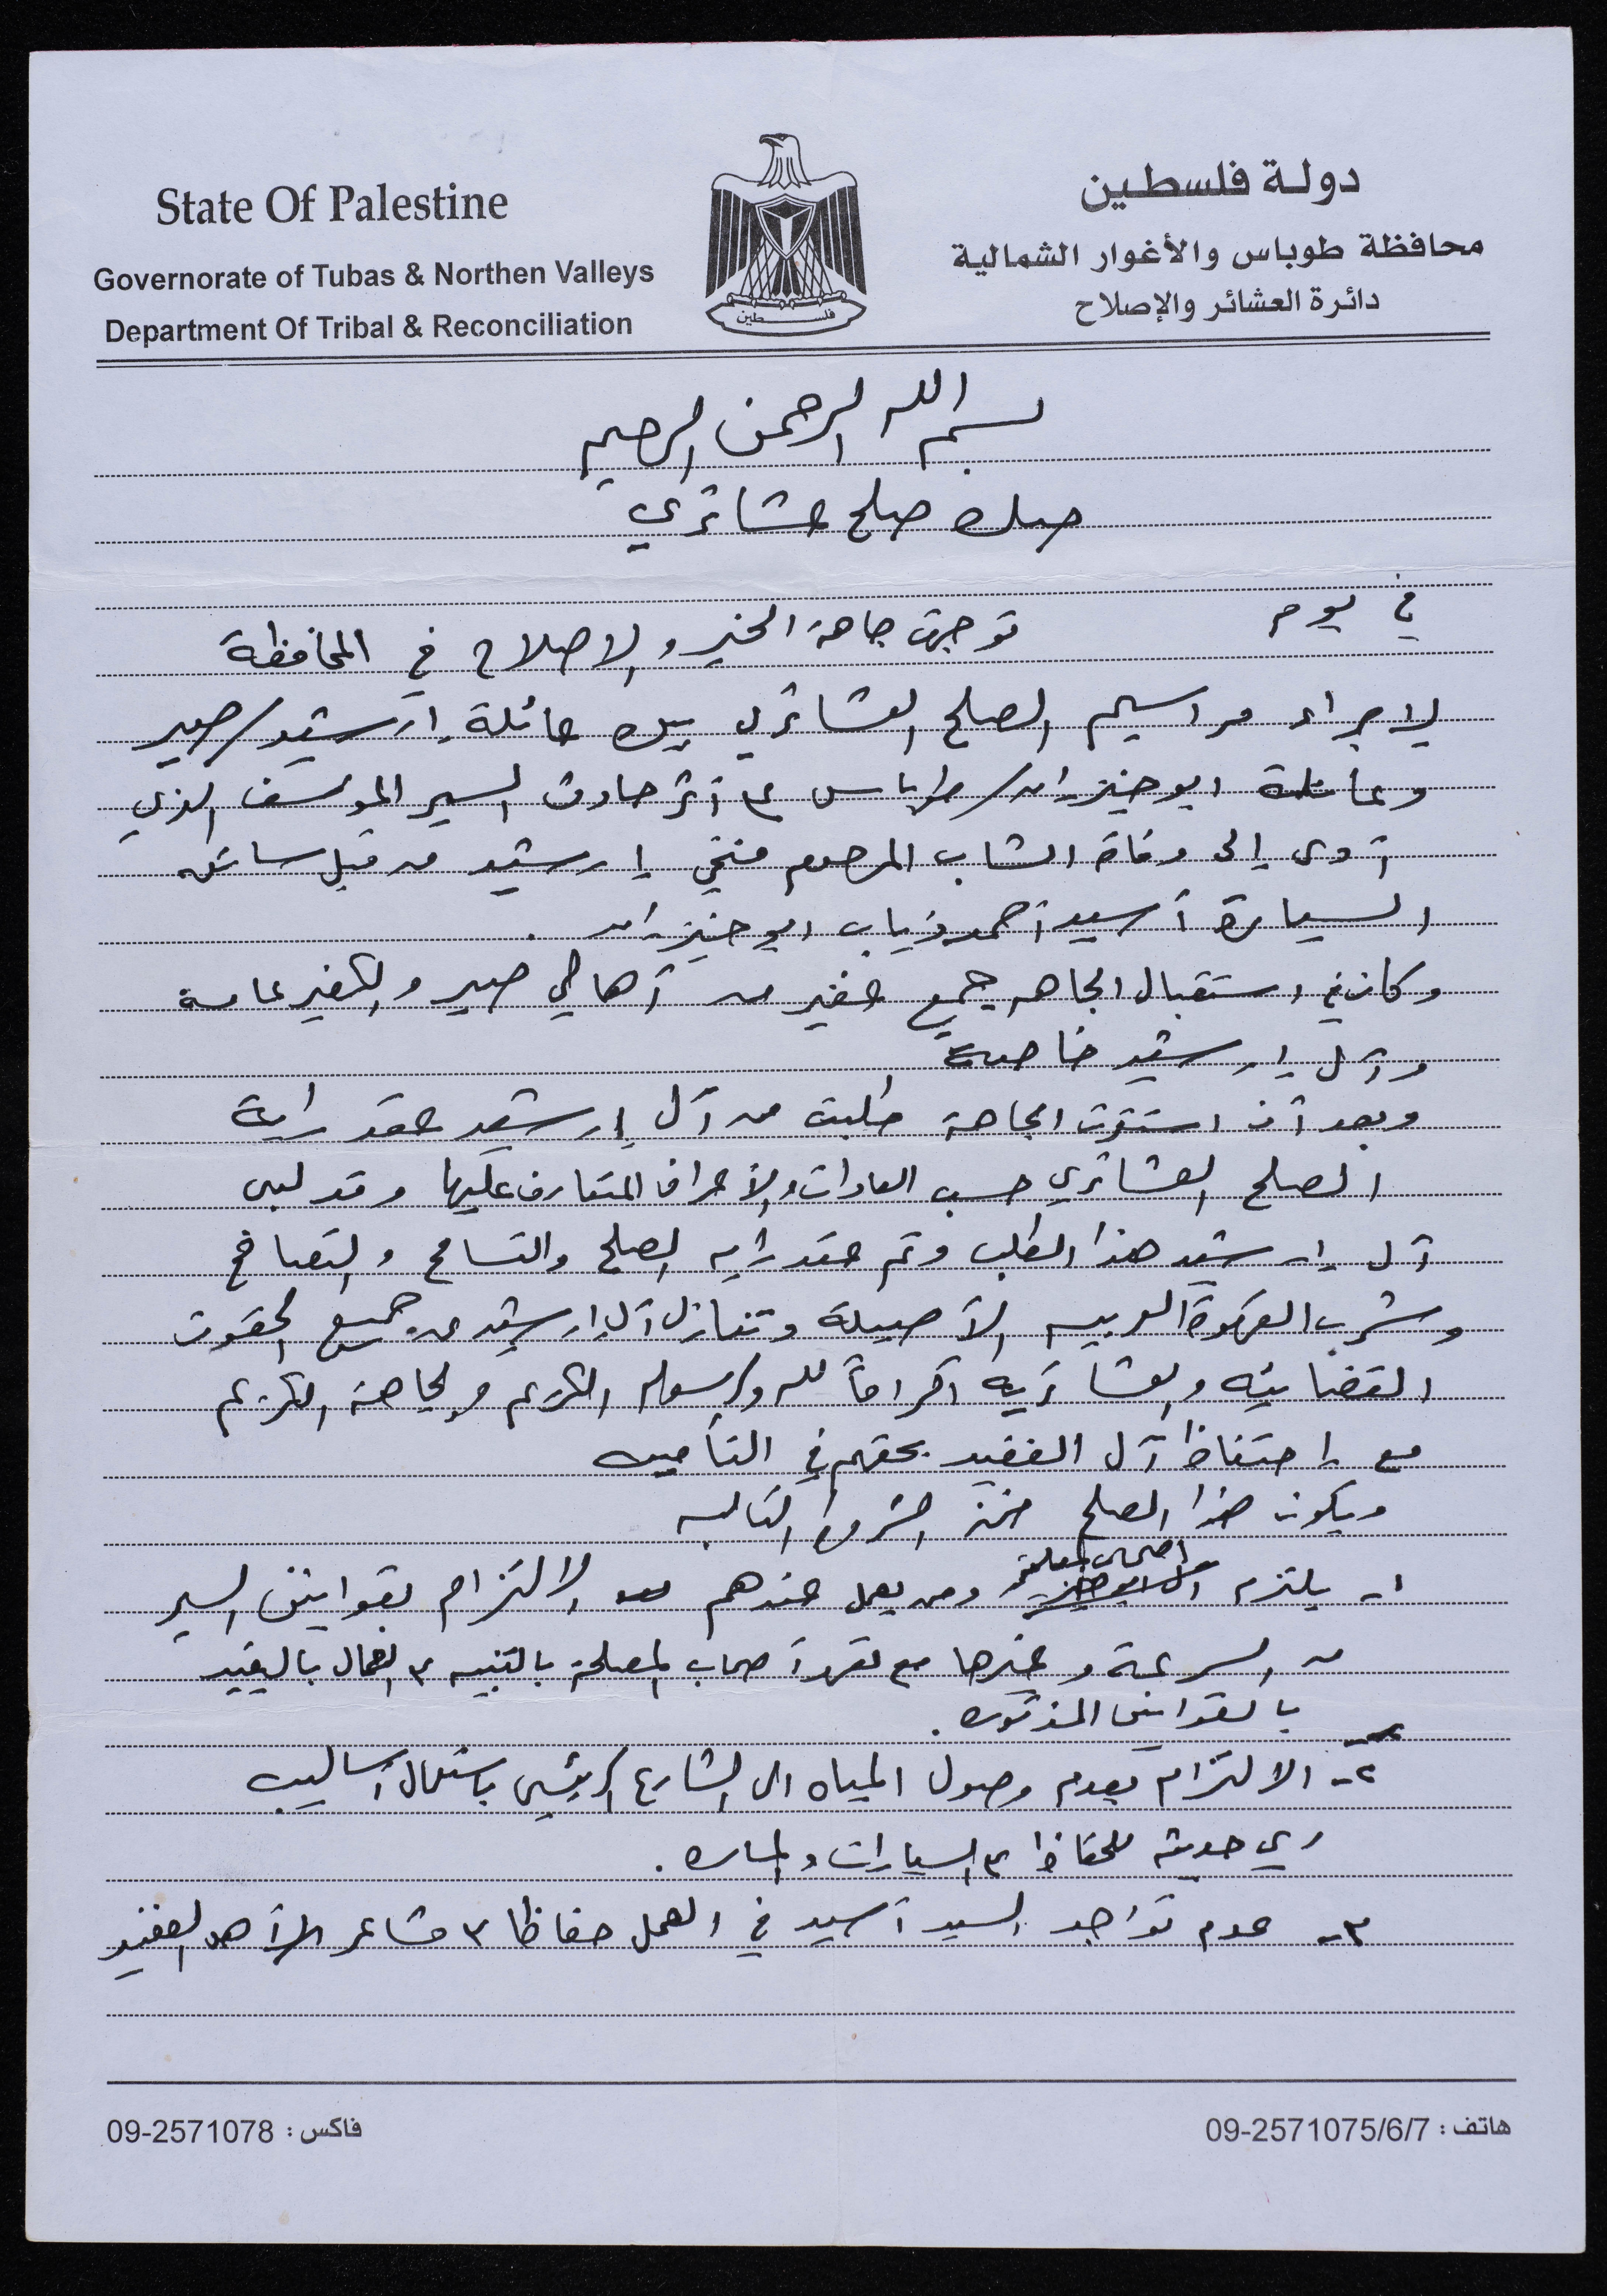 State Of Palestine
Governorate of Tubas & Northen Valleys
Department Of Tribal & Reconciliation
دولة فلسطين
محافظة طوباس والأغوار الشمالية
دائرة العشائر والإصلاح
فلسطين
بسم الله الرحمن الرحيم
صك صلح عشائري
في يوم توجهت جاهة الخير والإصلاح في المحافظة
لإجراء مراسيم الصلح العشائري بين عائلة إرشيد/صير
وعائلة ابو خيزران/طوباس على أثر حادث السير المؤسف الذي
أدى إلى وفاة الشاب المرحوم فتحي إرشيد من قبل سائق
السيارة أسيد أحمد ذياب ابو خيزران.
وكان في استقبال الجاهه جمع غفير من أهالي صير والكفير عامة
وآل إرشيد خاصة
وبعد أن استقرت الجاهة طلبت من آل إرشيد عقد راية
الصلح العشائري حسب العادات والأعراف المتعارف عليها وقد لبى
آل إرشيد هذا الطلب وتم عقد رايه الصلح والتسامح والتصافح
وشرب القهوة العربيه الأصيلة وتنازل آل إرشيد عن جميع الحقوق
القضائيه والعشائريه اكراماً لله ولرسوله الكريم ولجاهة الكريم
مع إحتفاظ آل الفقيد بحقهم في التأمين
ويكون هذا الصلح ضمن الشروط التاليه
اصحاب المصلحة
١- يلتزم ومن يعمل عندهم الالتزام بقوانين السير
من السرعة وغيرها مع تعهد أصحاب المصلحة بالتنبيه على العمال بالتقيد
بالقوانين المذكوره.
٢- الالتزام بعدم وصول المياه الى الشارع الرئيسي باستعمال أساليب
ري حديثه للحفاظ على السيارات والماره.
٣- عدم تواجد السيد أسيد في العمل حفاظا على مشاعر أهل الفقيد
هاتف : 09-2571075/6/7
فاكس : 09-2571078